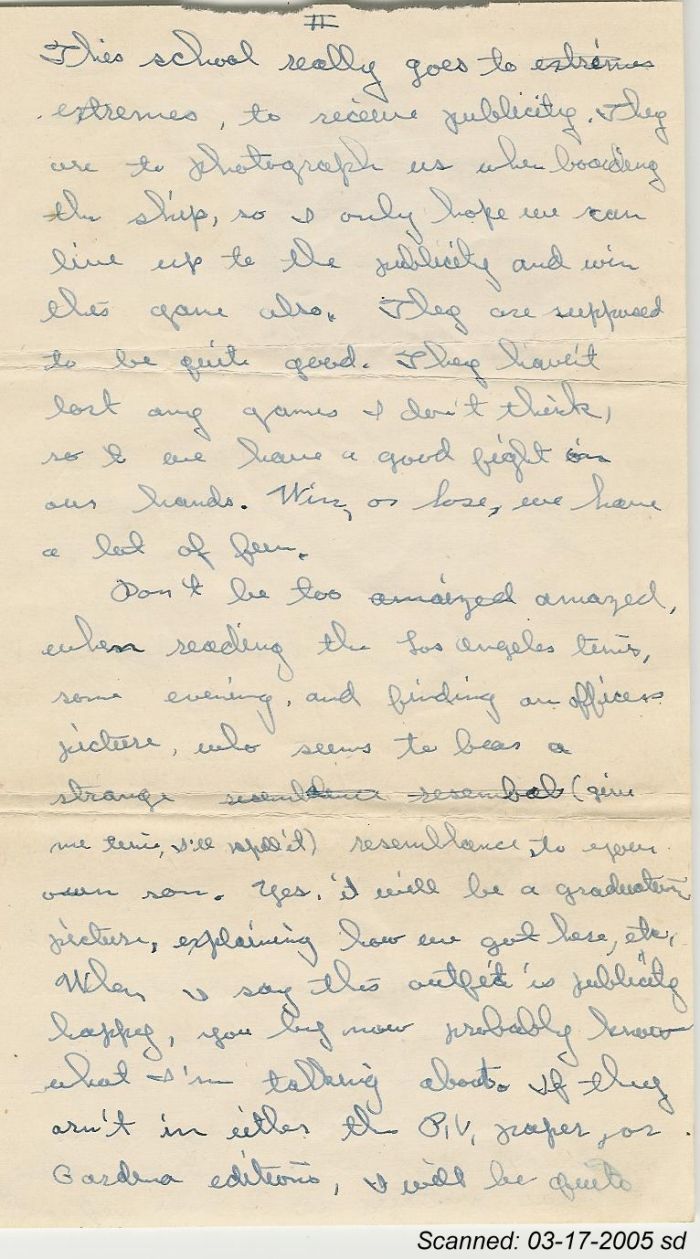 II
This school really goes to extrems
extremes, to receive publicity. They
are to photograph us when boarding
the ship, so I only hope we can
live up to the publicity and win
this game also. They are supposed
to be quite good. They haven't
lost any games I don't think,
so we have a good fight on
our hands. Win, or lose, we have
a lot of fun.
Don't be too amaized amazed,
when reading the Los Angeles times,
some evening, and finding an officers
picture, who seems to bear a
strange resemblance resembal (give
me time, I'll spell it) resemblance, to your
own son. Yes, it will be a graduation
picture, explaining how we got here, etc.
When I say this outfit is publicity
happy, you by now probably know
what I'm talking about. If they
arn't in either the P.V. paper, or
Gardena editions, I will be quite
Scanned: 03-17-2005 sd